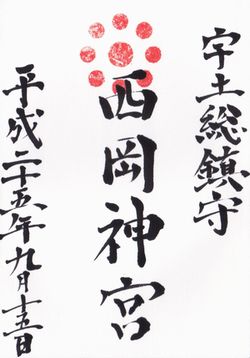 宇土総鎮守
西岡神宮
平成二十五年九月十五日